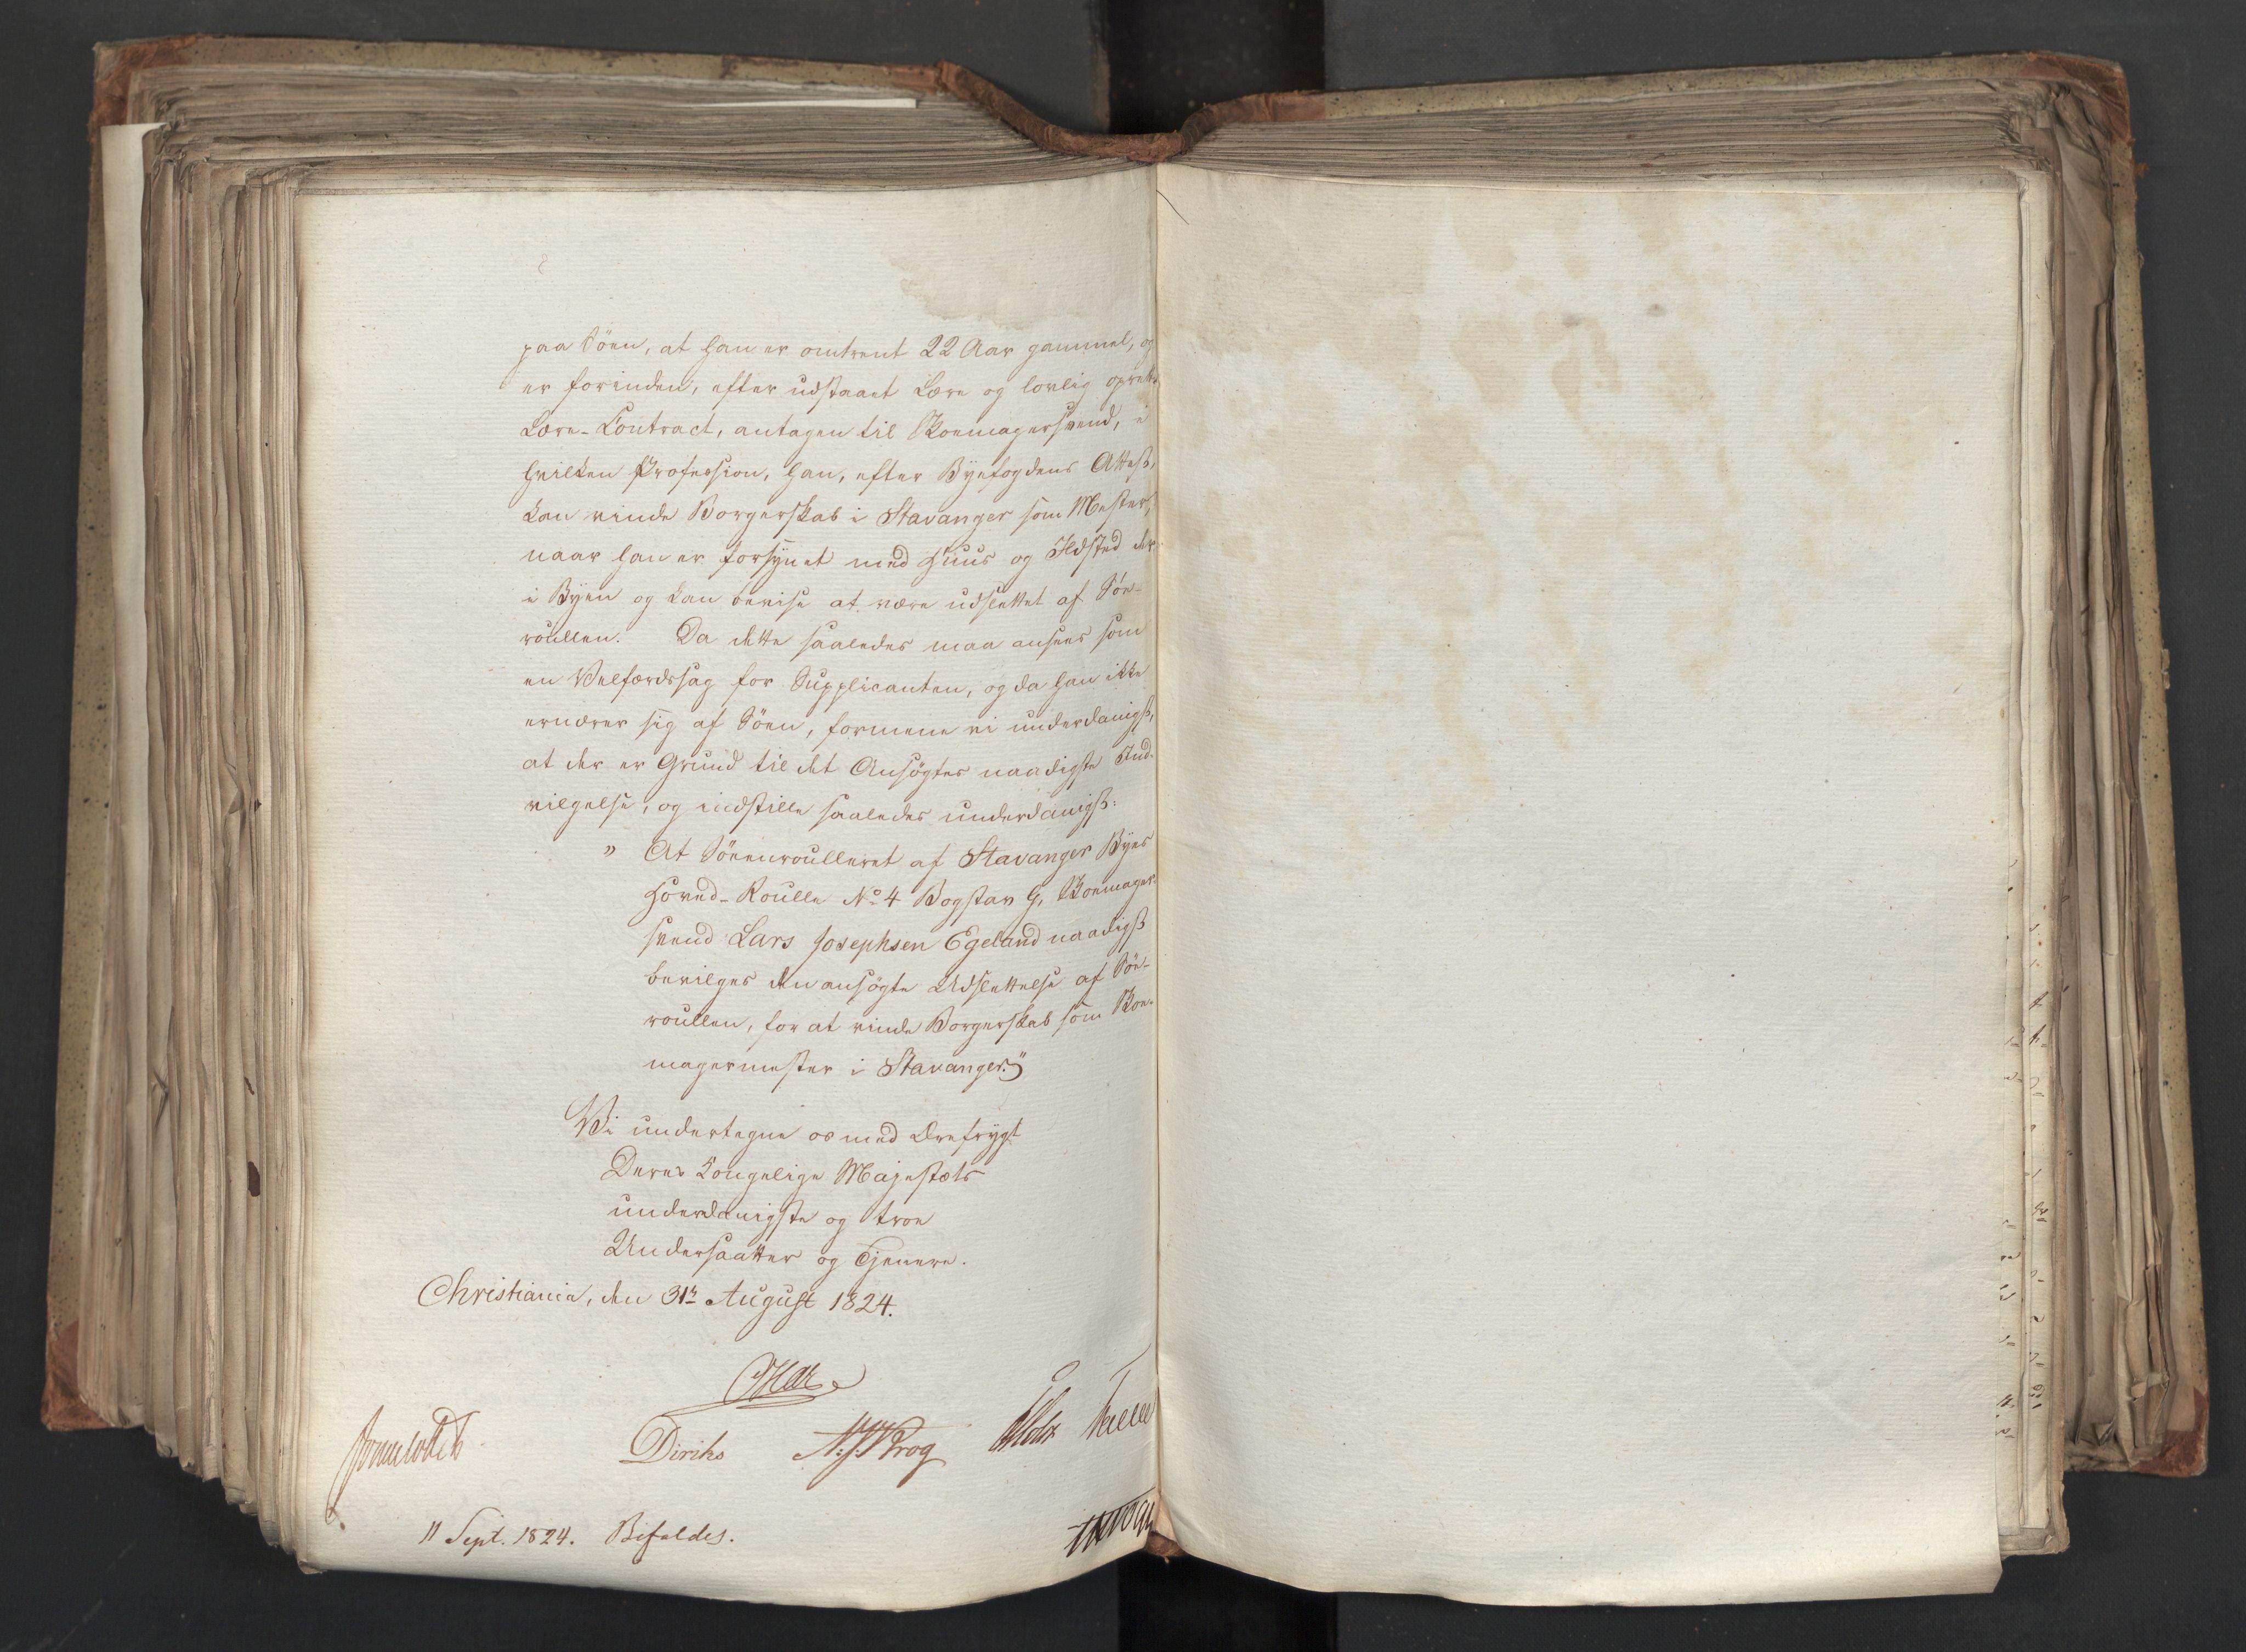 paa Söen, at han er omtrent 22 Aar gammel, og
er forinden, efter udstaaet Lære og lovlig oprettet
Lære-Contract, antagen til Skoemagersvend, i
hvilken Profession, han, efter Byefogdens Attest,
kan vinde Borgerskab i Stavanger som Mester,
naar han er forsynet med Huus og Ildsted der
i Byen og kan bevise at være udslettet af Söe-
roullen. Da dette saaledes maa ansees som
en Velfærdssag for Supplicanten, og da han ikke
ernærer sig af Söen, formene vi underdanigst,
at der er Grund til det Ansögtes naadigste Ind-
vilgelse, og indstille saaledes underdanigst:
" At Söeenroulleret af Stavanger Byes
Hoved-Roulle No 4 Bogstav G, Skoemager-
svend Lars Josephsen Egeland naadigst
bevilges den ansögte Udslettelse af Söe-
roullen, for at vinde Borgerskab som Skoe-
magermester i Stavanger."
Vi undertegne os med Ærefrygt
Deres Kongelige Majestæts
underdanigste og troe
Undersaatter og Tjenere.
Christiania, den 31te August 1824.
Diriks N: J: Krog
11 Sept. 1824. Bifaldes.